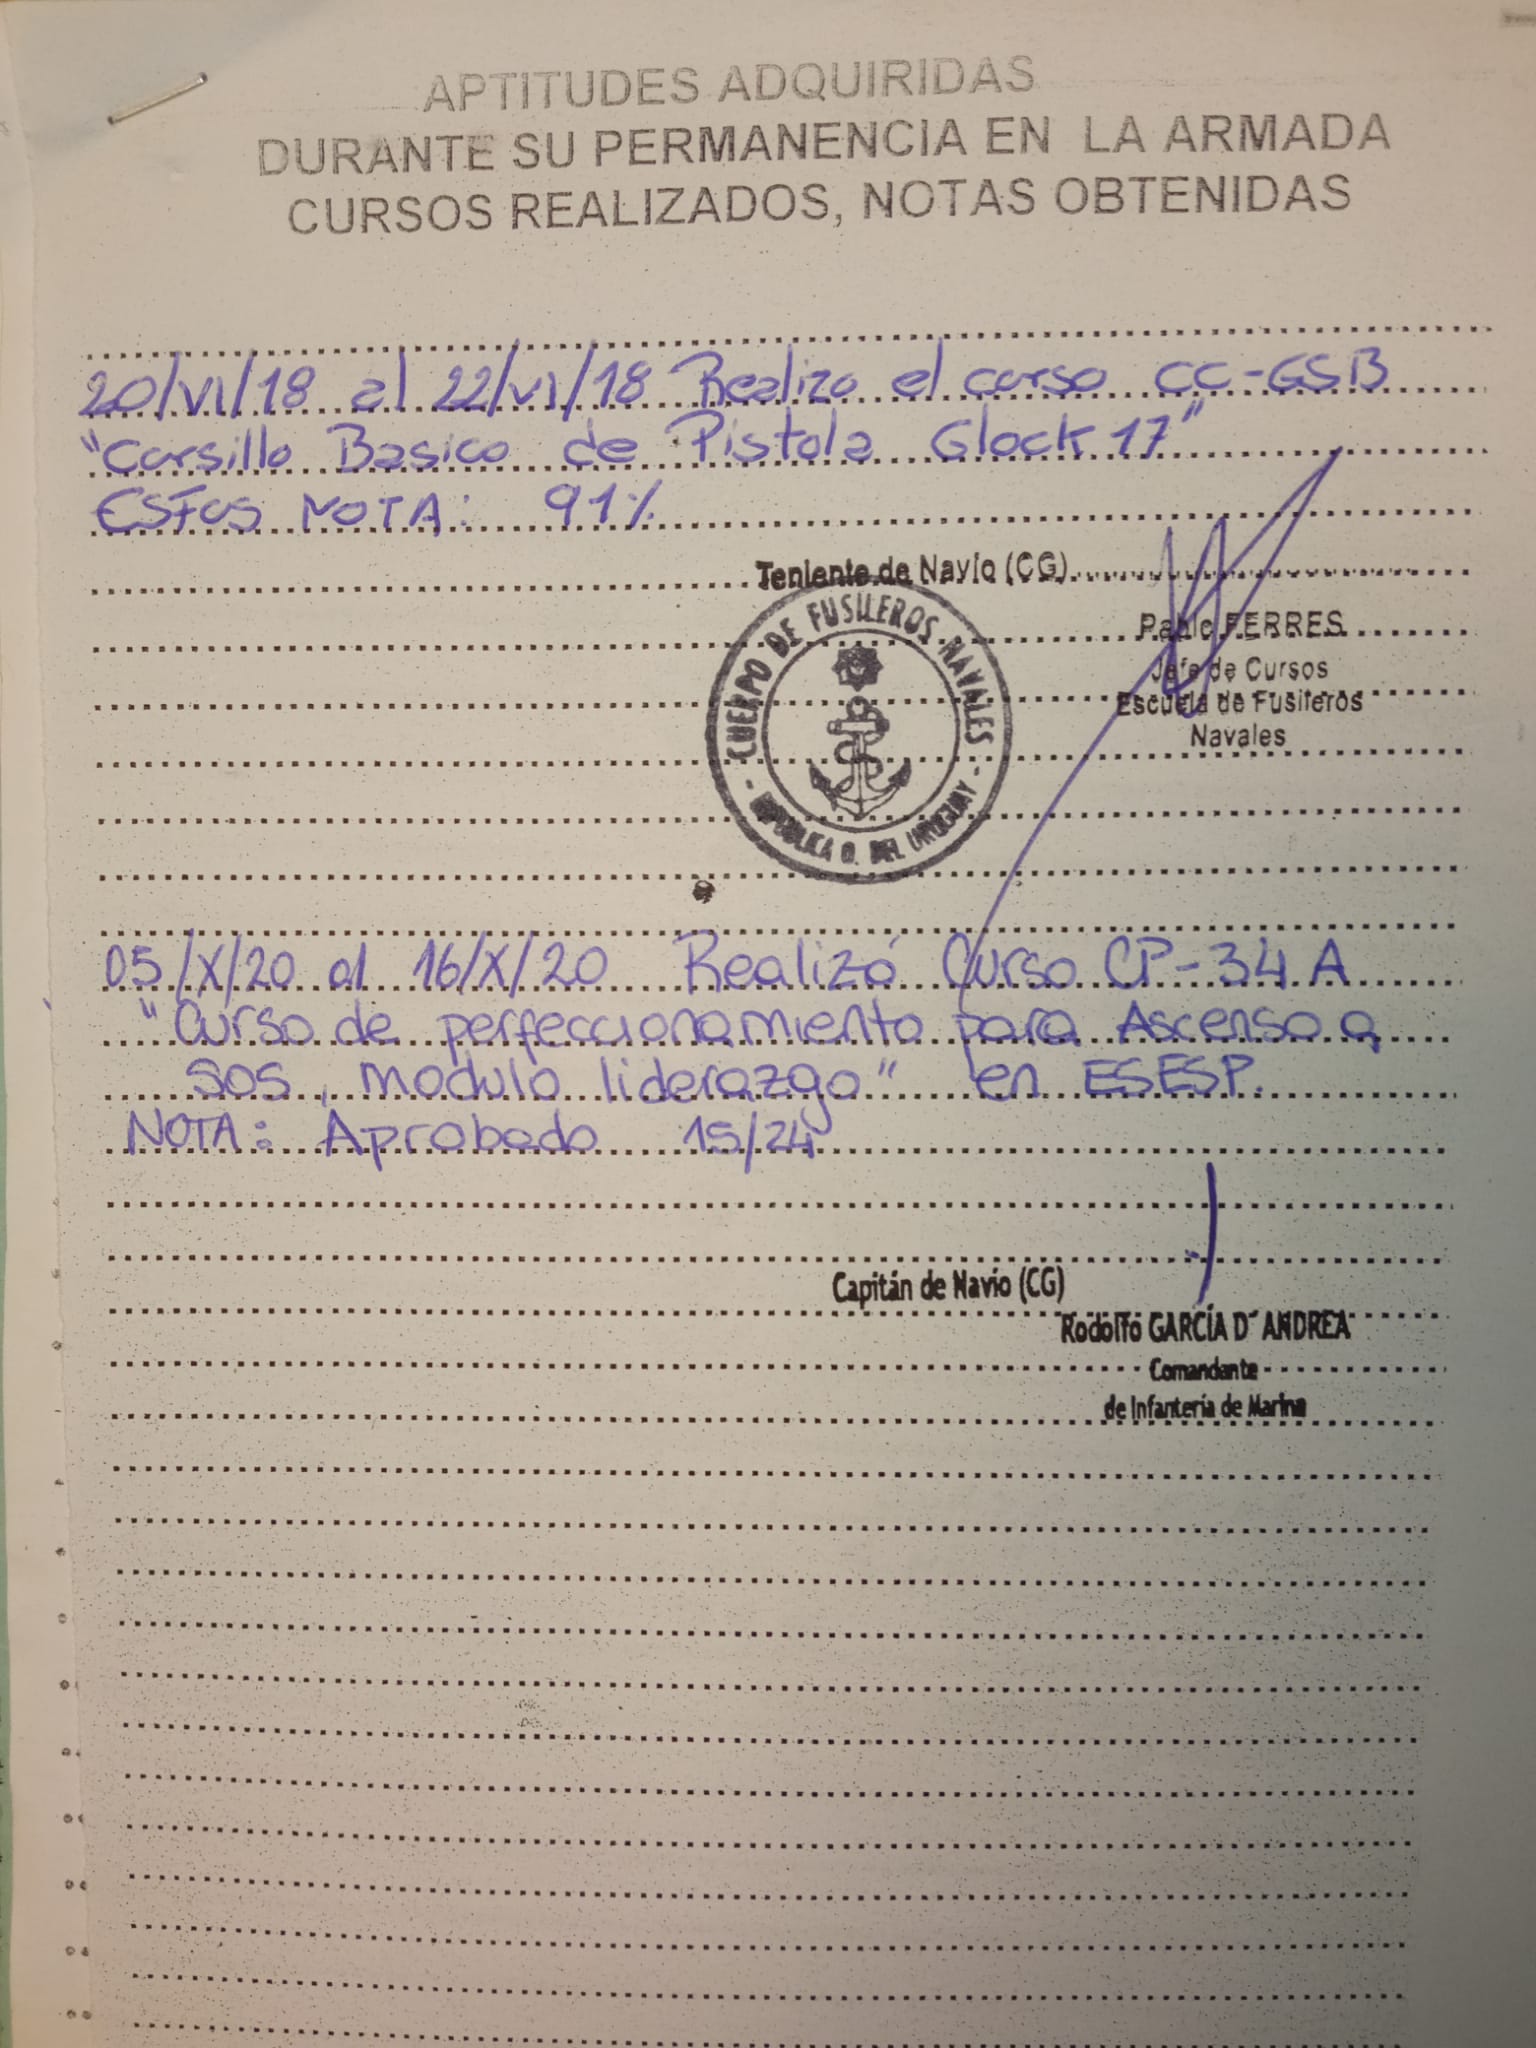 APTITUDES ADQUIRIDAS
DURANTE SU PERMANENCIA EN LA ARMADA
CURSOS REALIZADOS, NOTAS OBTENIDAS
20/VI/18 al 22/VI/18 Realizo el curso CC-GSB
"Cursillo Basico de Pistola Glock 17"
ESFUS NOTA: 91%
Teniente de Navío (CG)
Pablo FERRES
Jefe de Cursos
Escuela de Fusileros
Navales
CUERPO DE FUSILEROS NAVALES
- REPUBLICA O. DEL URUGUAY -
05/X/20 al 16/X/20 Realizó Curso CP-34 A
"Curso de perfeccionamiento para Ascenso a
SOS, modulo liderazgo" en ESESP.
NOTA: Aprobado 15/24
Capitán de Navío (CG)
Rodolfo GARCÍA D´ANDREA
Comandante
de Infantería de Marina